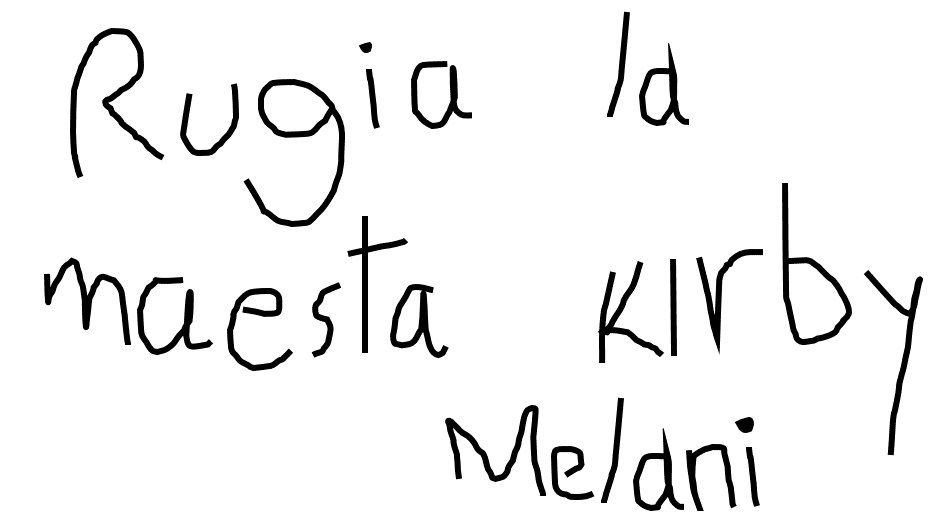 Rugia la
maesta Kirby
Melani